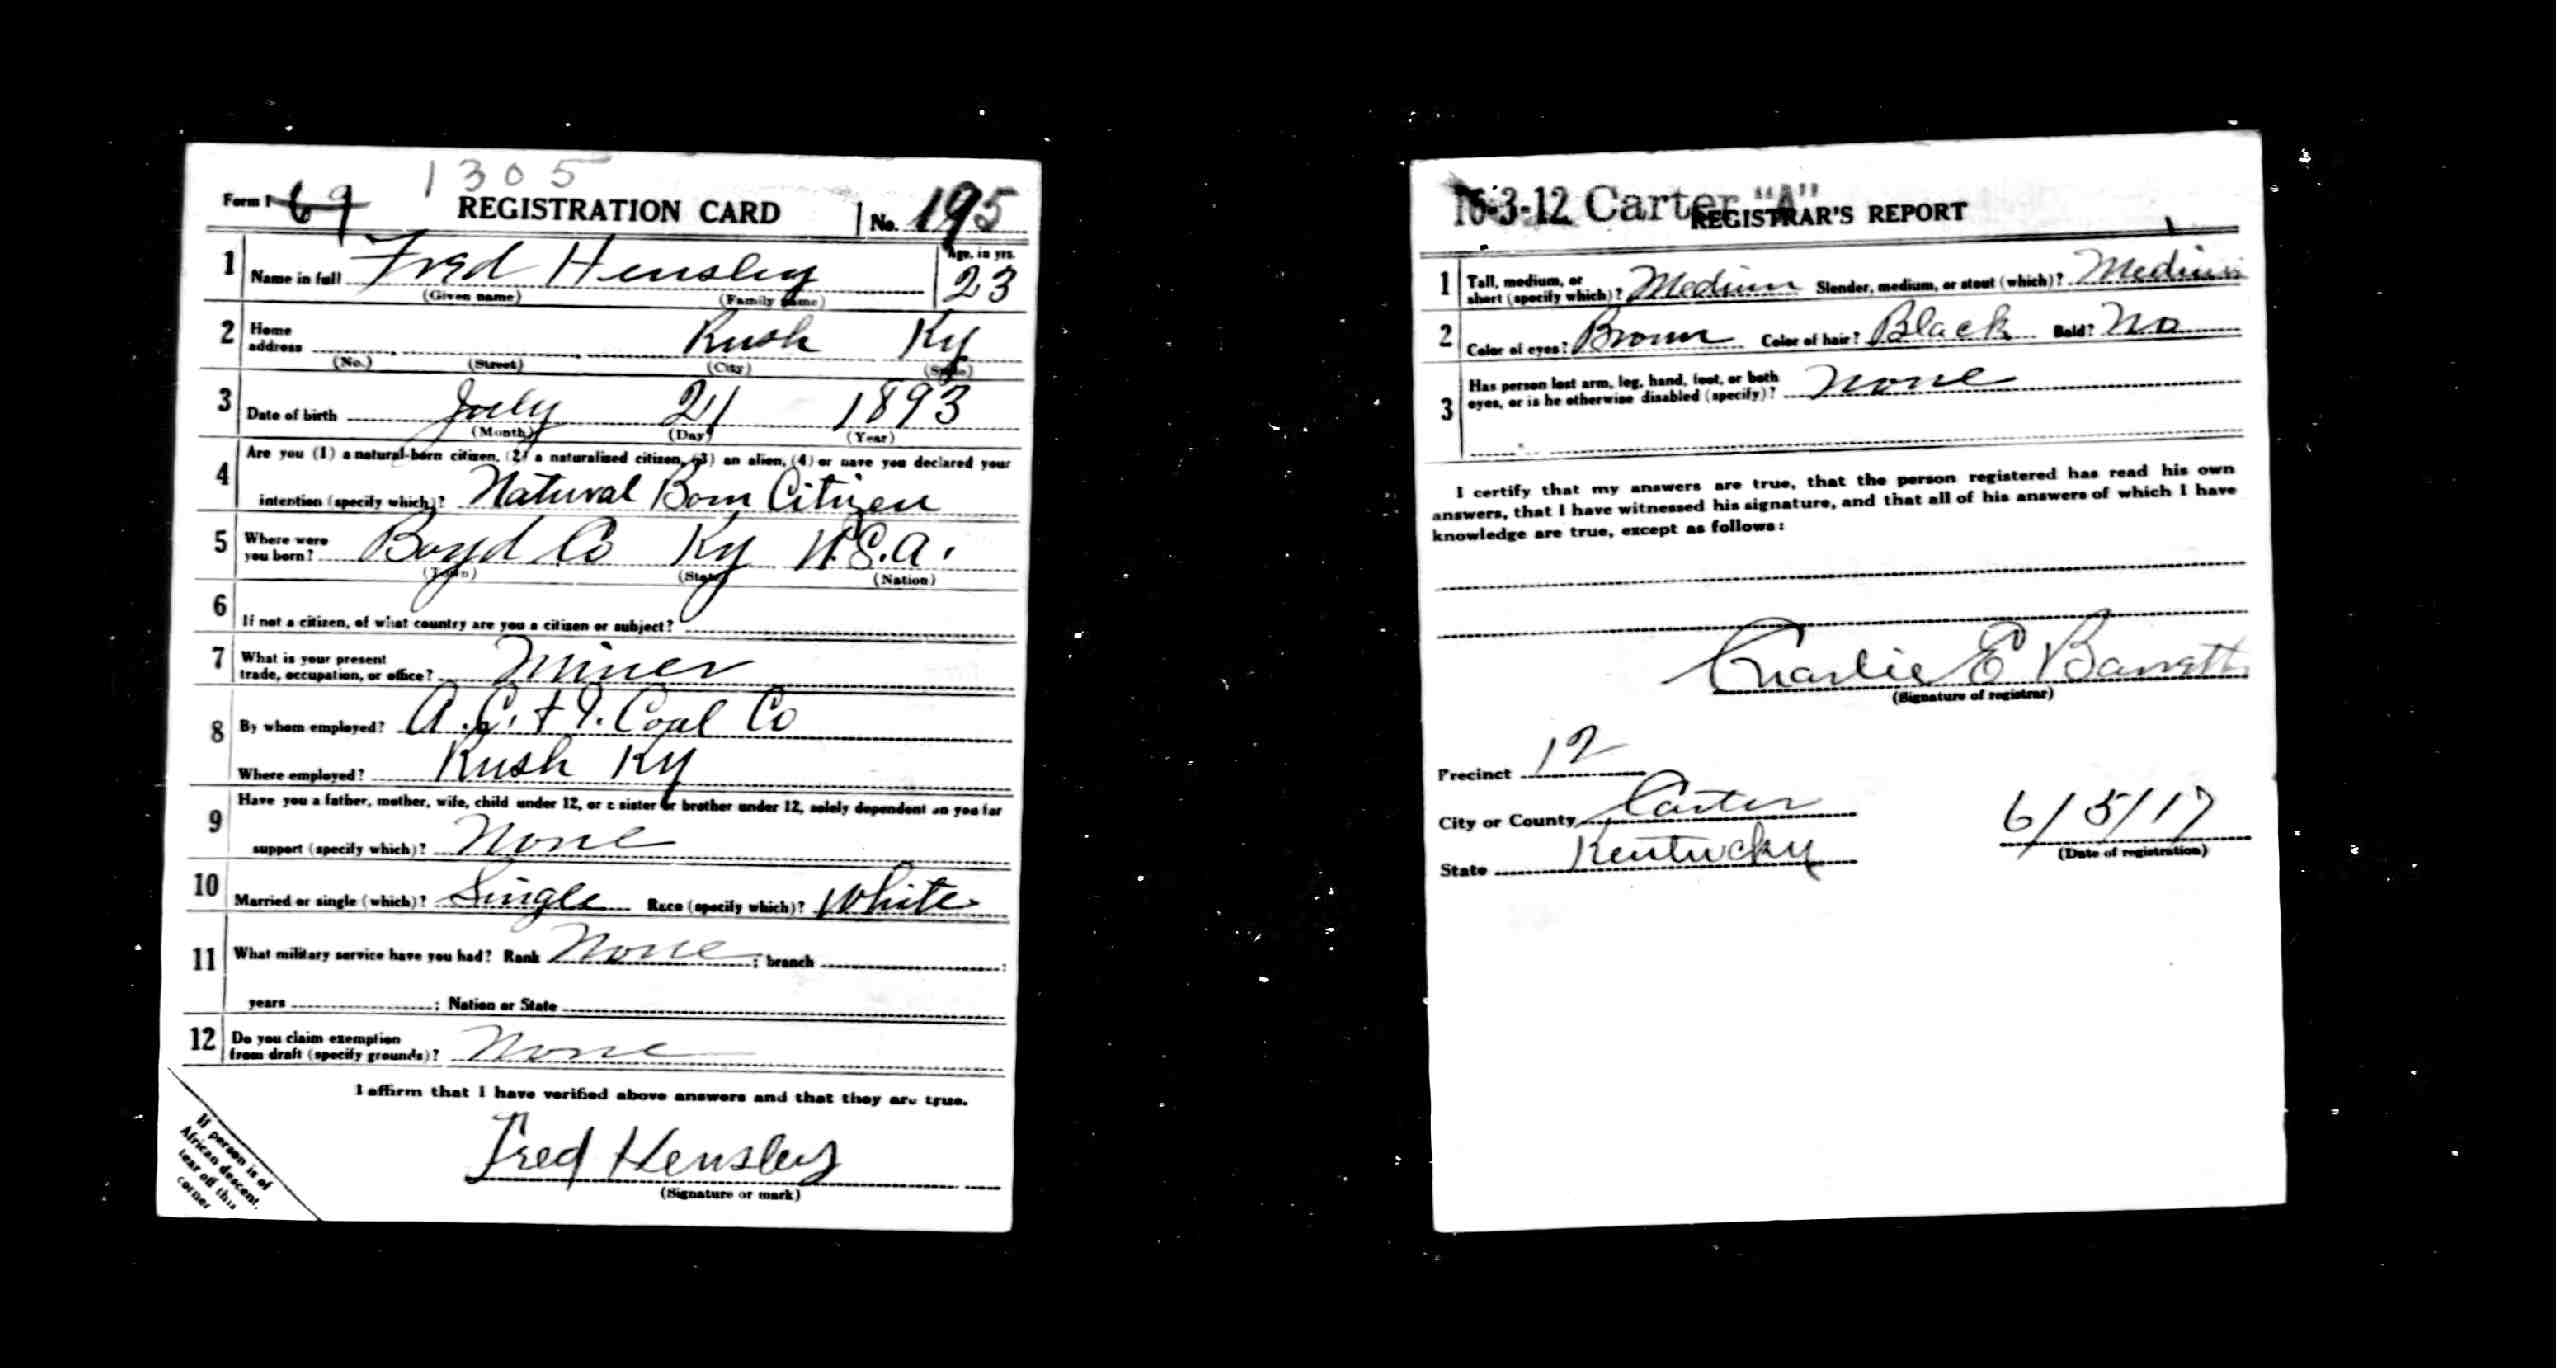 1305
Form 1 69 REGISTRATION CARD No. 195
1 Name in full Fred Hensley Age, in yrs. 23
(Given name) (Family name)
2 Home address Rush Ky
(No.) (Street) (City) (State)
3 Date of birth July 21 1893
(Month) (Day) (Year)
4 Are you (1) a natural-born citizen, (2) a naturalized citizen, (3) an alien, (4) or have you declared your
intention (specify which)? Natural Born Citizen
5 Where were you born? Boyd Co Ky U.S.A.
(Town) (State) (Nation)
6 If not a citizen, of what country are you a citizen or subject?
7 What is your present
trade, occupation, or office? Miner
8 By whom employed? A.C. & I. Coal Co
Where employed? Rush Ky
9 Have you a father, mother, wife, child under 12, or a sister or brother under 12, solely dependent on you for
support (specify which)? None
10 Married or single (which)? Single Race (specify which)? White
11 What military service have you had? Rank None ; branch ;
years ; Nation or State
12 Do you claim exemption
from draft (specify grounds)? None
I affirm that I have verified above answers and that they are true.
Fred Hensley
(Signature or mark)
If person is of
African descent,
tear off this
corner
16-3-12 Carter "A"
REGISTRAR'S REPORT
1 Tall, medium, or
short (specify which)? Medium Slender, medium, or stout (which)? Medium
2 Color of eyes? Brown Color of hair? Black Bald? No
3 Has person lost arm, leg, hand, foot, or both
eyes, or is he otherwise disabled (specify)? None
I certify that my answers are true, that the person registered has read his own
answers, that I have witnessed his signature, and that all of his answers of which I have
knowledge are true, except as follows:
Charlie E Barrett
(Signature of registrar)
Precinct 12
City or County Carter
State Kentucky
6/5/17
(Date of registration)